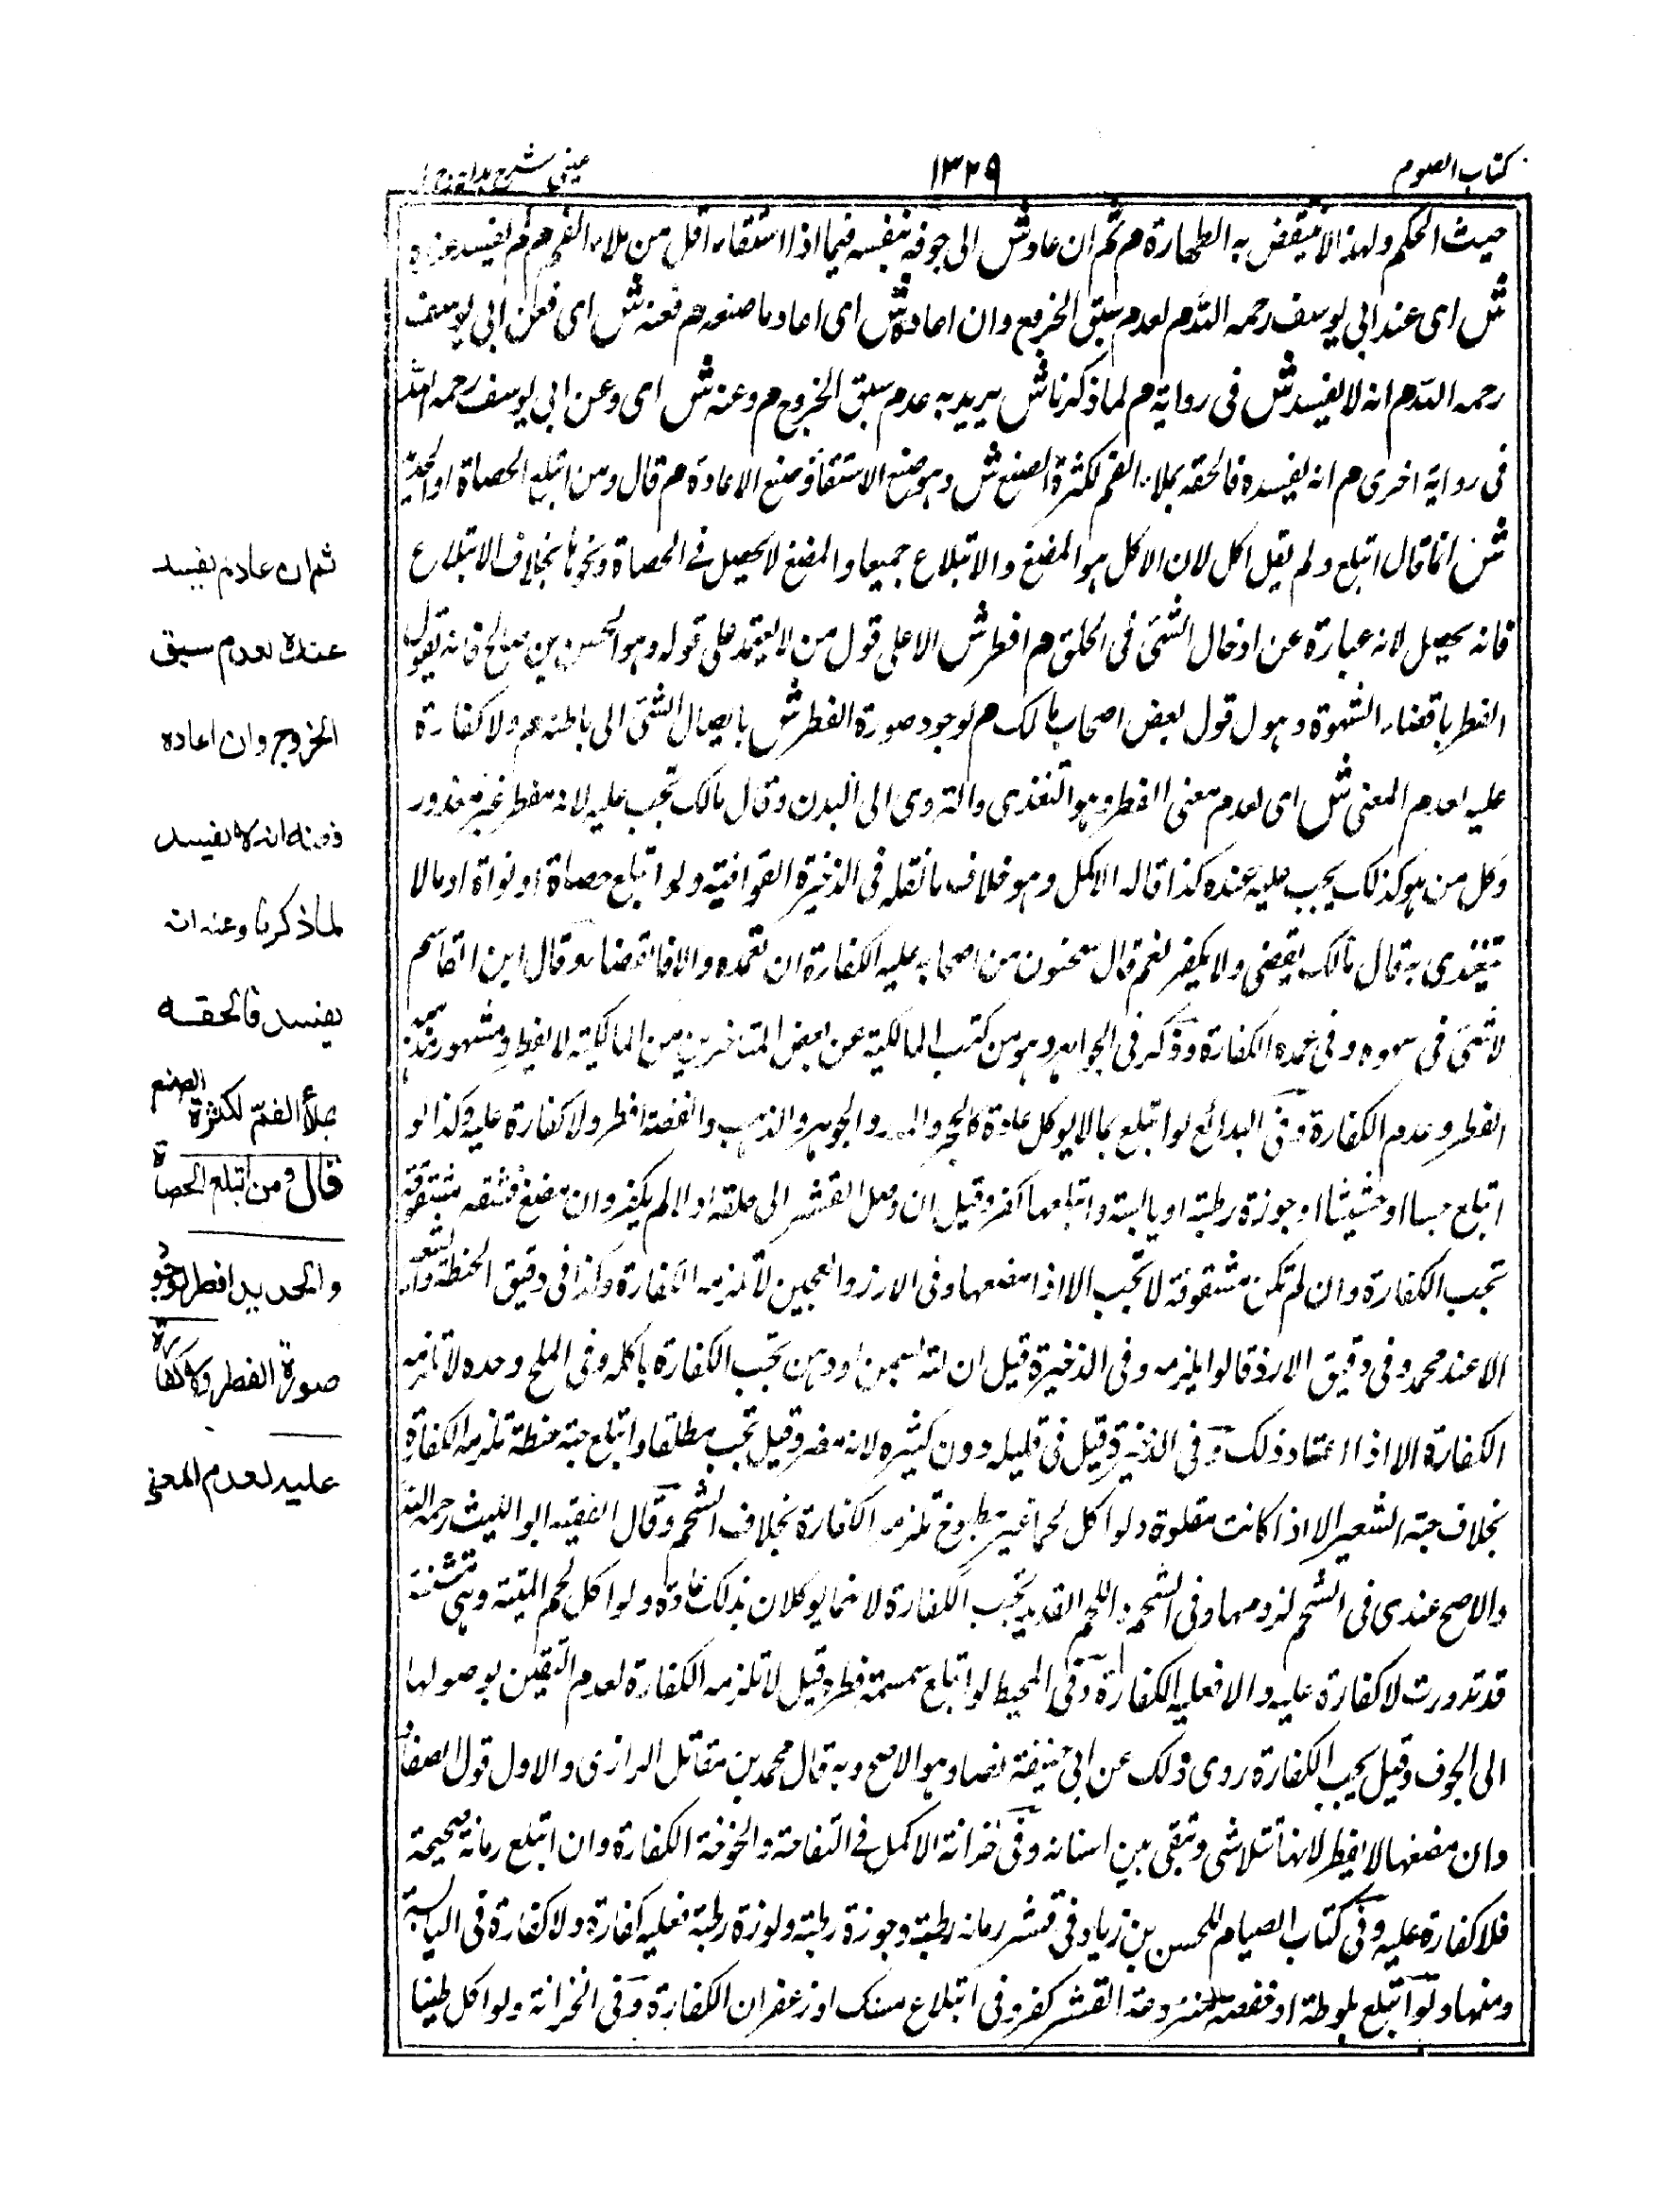 كتاب الصوم
١٣٢٩
عينى شرح هدايه ج ١
حيث الحكم ولهذا لا ينتقض به الطهارة م ثم ان عاد ش الى جوفه بنفسه فيما اذا استقاء اقل من ملاء الفم م لم يفسد عنده
ش اى عند ابى يوسف رحمه الله م لعدم سبق الخروج وان اعاده ش اى اعاد ما صنعه م فعنه ش اى فعن ابى يوسف
رحمه الله م انه لا يفسد ش فى رواية م لما ذكرنا ش يريد به عدم سبق الخروج م وعنه ش اى وعن ابى يوسف رحمه الله
فى رواية اخرى م انه يفسده فالحقه بملاء الفم لكثرة الصنع ش وهو صنع الاستقاء وصنع الاعادة م قال ومن ابتلع الحصاة او الحديد
ش انما قال ابتلع ولم يقل اكل لان الاكل هو المضغ والابتلاع جميعا والمضغ لا يحصل فى الحصاة ونحوها بخلاف الابتلاع
فانه يحصل لانه عبارة عن ادخال الشئ فى الحلق م افطر ش الا على قول من لا يعتمد على قوله وهو الحسن بن صالح فانه يقول
الفطر باقضاء الشهوة وهول قول بعض اصحاب مالك م لوجود صورة الفطر ش بايصال الشئ الى باطنه م ولا كفارة
عليه لعدم المعنى ش اى لعدم معنى الفطر وهو التغذى والتروى الى البدن وقال مالك تجب عليه لانه مفطر غير معذور
وكل من هو كذلك يجب عليه عنده كذا قاله الاكمل وهو خلاف ما نقله فى الذخيرة القرافية ولو ابتلع حصاة او نواة او ما لا
يتغذى به قال مالك يقضى ولا يكفر نعم قال سحنون من اصحابه عليه الكفارة ان تعمده والا فالقضاء وقال ابن القاسم
لا شئ فى سهوه وفى عمده الكفارة وذكر فى الجواهر وهو من كتب المالكية عن بعض المتاخرين من المالكية لا يفطر ومشهور مذهبهم
الفطر وعدم الكفارة وفى البدائع لو ابتلع ما لا يوكل عادة كالحجر والمدر والجوهر والذهب والفضة افطر ولا كفارة عليه وكذا لو
ابتلع حسا او حشيشا او جوزة رطبة او يابسة وابتلعها كفر وقيل ان وصل القشر الى حلقه اولا لم يكفر وان مضغ فستقه مشقوقة
تجب الكفارة وان لم تكن مشقوقة لا تجب الا اذا مضغها وفى الارز والعجين لا تلزمه الكفارة وكذا فى دقيق الحنطة والشعير
الا عند محمد وفى دقيق الارز قالوا يلزمه وفى الذخيرة قيل ان لته بسمن او دهن تجب الكفارة باكله وفى الملح وحده لا تلزمه
الكفارة الا اذا اعتاد ذلك وفى الذخيرة قيل فى قليله دون كثيره لانه مضر وقيل تجب مطلقا وابتلع حبة حنطة تلزمه الكفارة
بخلاف حبة الشعير الا اذا كانت مقلوة ولو اكل لحما غير مطبوخ تلزمه الكفارة بخلاف الشحم وقال الفقيه ابو الليث رحمه الله
والاصح عندى فى الشحم لزومها وفى الشحم واللحم القديد تجب الكفارة لانهما يوكلان بذلك عادة ولو اكل لحم الميتة وهى منتنة
قد تدورت لا كفارة عليه والا فعليه الكفارة وفى المحيط لو ابتلع سمسمة فطر وقيل لا تلزمه الكفارة لعدم اليقين بوصولها
الى الجوف وقيل يجب الكفارة روى ذلك عن ابى حنيفة نصا وهو الاصح وبه قال محمد بن مقاتل الرازى والاول قول الصفار
وان مضغها لا يفطر لانها تتلاشى وتبقى بين اسنانه وفى خزانة الاكمل فى التفاحة والخوخة الكفارة وان ابتلع رمانة صحيحة
فلا كفارة عليه وفى كتاب الصيام للحسن بن زياد فى قشر رمانه رطبة وجوزة رطبة ولوزة رطبة فعليه كفارة ولا كفارة فى اليابسة
ومنها ولو ابتلع بلوطة او منزوعة القشر كفر وفى ابتلاع مسك او زعفران الكفارة وفى الخزانة ولو اكل طينا
ثم ان عاد لم يفسد
عنده لعدم سبق
الخروج وان اعاده
فعنه انه لا يفسد
لما ذكرنا وعنه انه
يفسد فالحقه
بملأ الفم لكثرة الصنع
قال ومن ابتلع الحصاة
والحديد افطر لوجود
صورة الفطر ولا كفارة
عليه لعدم المعنى